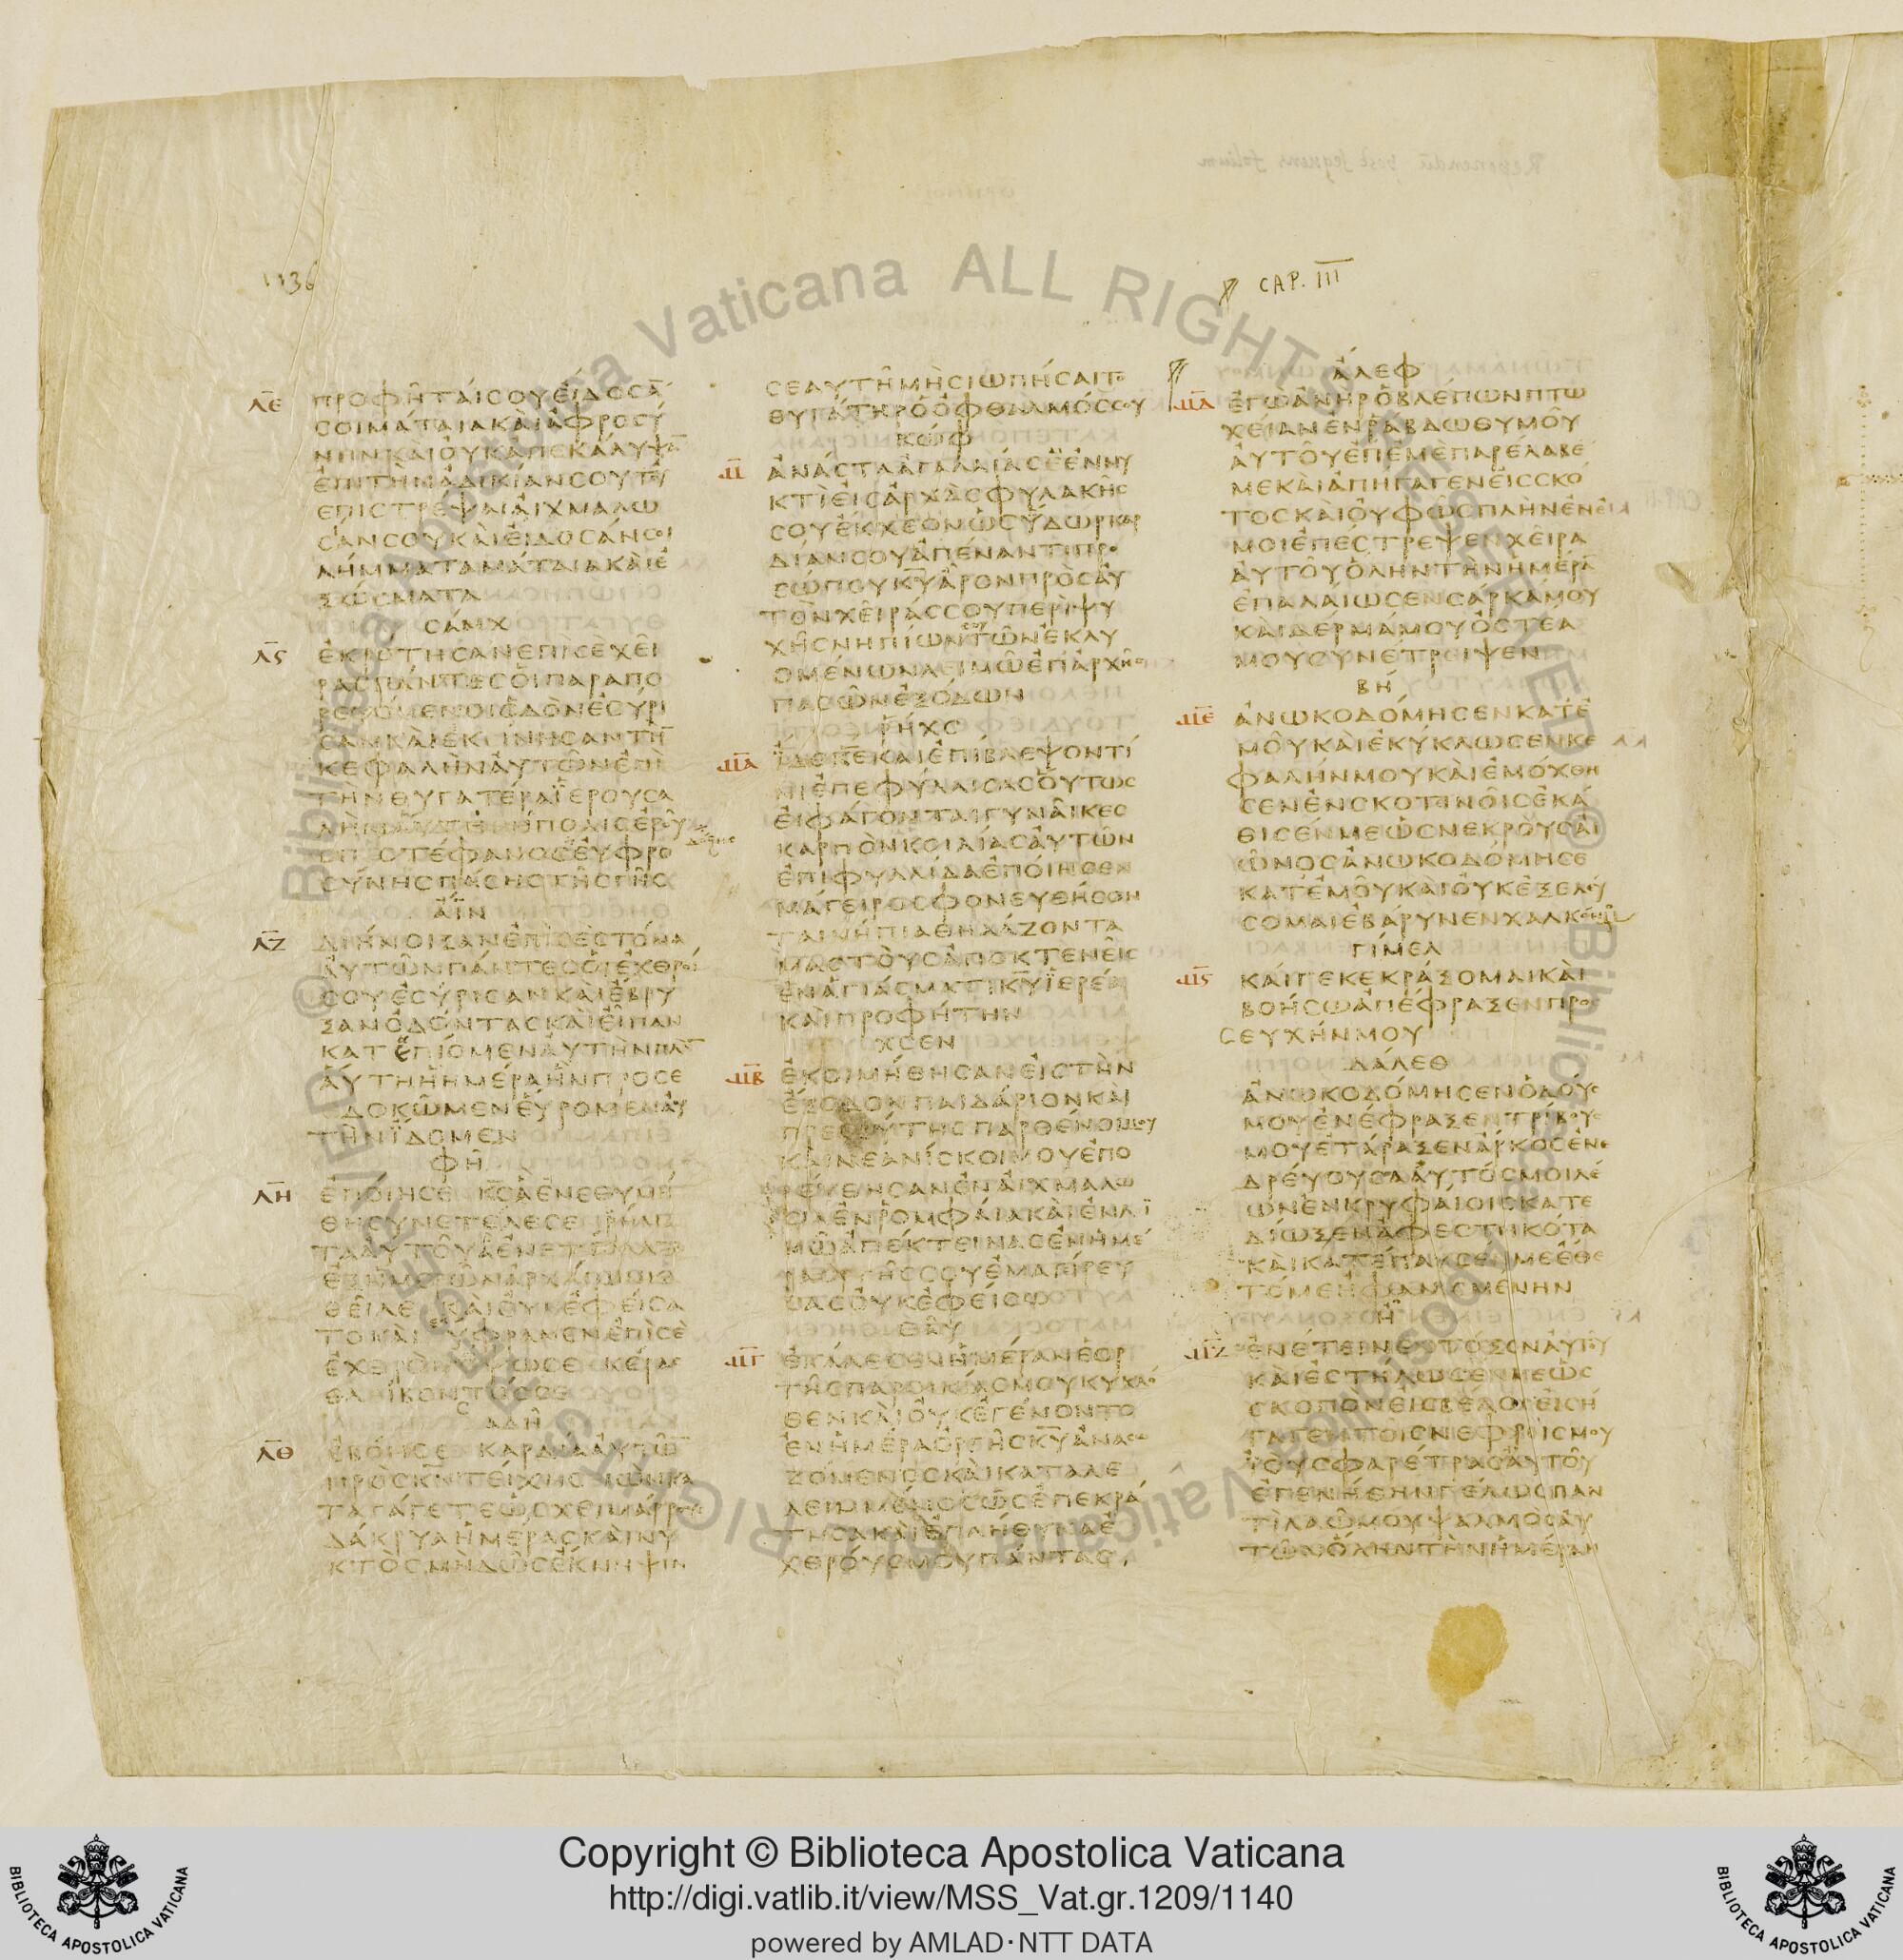 1136
CAP. III
ΛΕ ΠΡΟΦΗΤΑΙΣΟΥΕΙΔΟΣΑ̅
ΣΟΙΜΑΤΑΙΑΚΑΙΑΦΡΟΣΥ
ΝΗΝΚΑΙΟΥΚΑΠΕΚΑΛΥΨΑ̅
ΕΠΙΤΗΝΑΔΙΚΙΑΝΣΟΥΤΟΥ
ΕΠΙΣΤΡΕΨΑΙΑΙΧΜΑΛΩ
ΣΙΑΝΣΟΥΚΑΙΕΙΔΟΣΑΝΣΟΙ
ΛΗΜΜΑΤΑΜΑΤΑΙΑΚΑΙΕ
ΞΩΣΜΑΤΑ
ΣΑΜΧ
ΛϚ ΕΚΡΟΤΗΣΑΝΕΠΙΣΕΧΕΙ
ΡΑΣΠΑΝΤΕΣΟΙΠΑΡΑΠΟ
ΡΕΥΟΜΕΝΟΙΟΔΟΝΕΣΥΡΙ
ΣΑΝΚΑΙΕΚΙΝΗΣΑΝΤΗ̅
ΚΕΦΑΛΗΝΑΥΤΩΝΕΠΙ
ΤΗΝΘΥΓΑΤΕΡΑΙΕΡΟΥΣΑ
ΛΗΜ
ΣΤΕΦΑΝΟΣΕΥΦΡΟ
ΣΥΝΗΣΠΑΣΗΣΤΗΣΓΗΣ
ΑΙΝ
ΛΖ ΔΙΗΝΟΙΞΑΝΕΠΙΣΕΣΤΟΜΑ
ΑΥΤΩΝΠΑΝΤΕΣΟΙΕΧΘΡΟΙ
ΣΟΥΕΣΥΡΙΣΑΝΚΑΙΕΒΡΥ
ΞΑΝΟΔΟΝΤΑΣΚΑΙΕΙΠΑΝ
ΚΑΤΕΠΙΟΜΕΝΑΥΤΗΝΠΛΗΝ
ΑΥΤΗΗΗΜΕΡΑΗΝΠΡΟΣΕ
ΔΟΚΩΜΕΝΕΥΡΟΜΕΝΑΥ
ΤΗΝΙΔΟΜΕΝ
ΦΗ
ΛΗ ΕΠΟΙΗΣΕ Κ̅Σ̅ΑΕΝΕΘΥΜΗ
ΘΗΣΥΝΕΤΕΛΕΣΕ ΡΗΜΑ
ΤΑΑΥΤΟΥΑΕΝΕΤΕΙΛΑΤΟ
ΕΞΗΜΕΡΩΝΑΡΧΑΙΩΝ
ΘΕΙΛΕ ΚΑΙΟΥΚΕΦΕΙΣΑ
ΤΟΚΑΙ ΥΦΡΑΝΕΝΕΠΙΣΕ
ΕΧΘΡΟΝΥΨΩΣΕ ΚΕΡΑΣ
ΘΛΙΒΟΝΤΟΣΣΕ
ΣΑΔΗ
ΛΘ ΕΒΟΗΣΕ ΚΑΡΔΙΑΑΥΤΩ̅
ΠΡΟΣΚ̅Ν̅ΤΕΙΧΗΣ ΙΩΝΚΑ
ΤΑΓΑΓΕΤΕΩΣΧΕΙΜΑΡΡΟΥΣ
ΔΑΚΡΥΑΗΜΕΡΑΣΚΑΙΝΥ
ΚΤΟΣΜΗΔΩΣΕΚΝΗΨΙΝ
ΣΕΑΥΤΗΜΗΣΙΩΠΗΣΑΙΤΟ
ΘΥΓΑΤΗΡΟΟΦΘΑΛΜΟΣΣΟΥ
ΚΩΦ
Μ ΑΝΑΣΤΑΑΓΑΛΛΙΑΣΕΕΝΝΥ
ΚΤΙΕΙΣΑΡΧΑΣΦΥΛΑΚΗΣ
ΣΟΥΕΚΧΕΟΝΩΣΥΔΩΡΚΑΡ
ΔΙΑΝΣΟΥΑΠΕΝΑΝΤΙΠΡΟ
ΣΩΠΟΥΚ̅Υ̅ΑΡΟΝΠΡΟΣΑΥ
ΤΟΝΧΕΙΡΑΣΣΟΥΠΕΡΙΨΥ
ΧΗΣΝΗΠΙΩΝΤΩΝΕΚΛΥ
ΟΜΕΝΩΝΛΕΙΜΩΕΠΑΡΧΗΣ
ΠΑΣΩΝΕΞΟΔΩΝ
ΡΗΧΣ
ΜΑ ΙΔΕΚ̅Ε̅ΚΑΙΕΠΙΒΛΕΨΟΝΤΙ
ΝΙΕΠΕΦΥΛΛΙΣΑΣΟΥΤΩΣ
ΕΙΦΑΓΟΝΤΑΙΓΥΝΑΙΚΕΣ
ΚΑΡΠΟΝΚΟΙΛΙΑΣΑΥΤΩΝ
ΕΠΙΦΥΛΛΙΔΑΕΠΟΙΗΣΕΝ
ΜΑΓΕΙΡΟΣΦΟΝΕΥΘΗΣΟΝ
ΤΑΙΝΗΠΙΑΘΗΛΑΖΟΝΤΑ
ΜΑΣΤΟΥΣΑΠΟΚΤΕΝΕΙΣ
ΕΝΑΓΙΑΣΜΑΤΙΚ̅Υ̅ΙΕΡΕΑ
ΚΑΙΠΡΟΦΗΤΗΝ
ΧΣΕΝ
ΜΒ ΕΚΟΙΜΗΘΗΣΑΝΕΙΣΤΗΝ
ΕΞΟΔΟΝΠΑΙΔΑΡΙΟΝΚΑΙ
ΠΡΕΣΒΥΤΗΣΠΑΡΘΕΝΟΙΜΟΥ
ΚΑΙΝΕΑΝΙΣΚΟΙΜΟΥΕΠΟ
ΡΕΥΘΗΣΑΝΕΝΑΙΧΜΑΛΩ
ΣΙΑΕΝΡΟΜΦΑΙΑΚΑΙΕΝΛΙ
ΜΩΑΠΕΚΤΕΙΝΑΣΕΝΗΜΕ
ΡΑΟΡΓΗΣΣΟΥΕΜΑΓΙΡΕΥ
ΣΑΣΟΥΚΕΦΕΙΣΩ
ΘΑΥ
ΜΓ ΕΚΑΛΕΣΕΝΗΜΕΡΑΝΕΟΡ
ΤΗΣΠΑΡΟΙΚΙΑΣΜΟΥΚΥΚΛΟ
ΘΕΝΚΑΙΟΥΚΕΓΕΝΟΝΤΟ
ΕΝΗΜΕΡΑΟΡΓΗΣΚ̅Υ̅ΑΝΑΣΩ
ΖΟΜΕΝΟΣΚΑΙΚΑΤΑΛΕ
ΛΕΙΜΜΕΝΟΣΩΣΕΠΕΚΡΑ
ΤΗΣΑΚΑΙΕΠΛΗΘΥΝΑΕ
ΧΘΡΟΥΣΜΟΥΠΑΝΤΑΣ
ΑΛΕΦ
ΜΔ ΕΓΩΑΝΗΡΟΒΛΕΠΩΝΠΤΩ
ΧΕΙΑΝΕΝΡΑΒΔΩΘΥΜΟΥ
ΑΥΤΟΥΕΠΕΜΕΠΑΡΕΛΑΒΕ
ΜΕΚΑΙΑΠΗΓΑΓΕΝΕΙΣΣΚΟ
ΤΟΣΚΑΙΟΥΦΩΣΠΛΗΝΕΝ
ΜΟΙΕΠΕΣΤΡΕΨΕΝΧΕΙΡΑ
ΑΥΤΟΥΟΛΗΝΤΗΝΗΜΕΡΑ̅
ΕΠΑΛΑΙΩΣΕΝΣΑΡΚΑΜΟΥ
ΚΑΙΔΕΡΜΑΜΟΥΟΣΤΕΑ
ΜΟΥΣΥΝΕΤΡΙΨΕΝ
ΒΗ
ΜΕ ΑΝΩΚΟΔΟΜΗΣΕΝΚΑΤΕ
ΜΟΥΚΑΙΕΚΥΚΛΩΣΕΝΚΕ
ΦΑΛΗΝΜΟΥΚΑΙΕΜΟΧΘΗ
ΣΕΝΕΝΣΚΟΤΙΝΟΙΣΕΚΑ
ΘΙΣΕΝΜΕΩΣΝΕΚΡΟΥΣΑΙ
ΩΝΟΣΑΝΩΚΟΔΟΜΗΣΕ
ΚΑΤΕΜΟΥΚΑΙΟΥΚΕΞΕΛΕΥ
ΣΟΜΑΙΕΒΑΡΥΝΕΝΧΑΛΚΟΝΜΟΥ
ΓΙΜΕΛ
ΜϚ ΚΑΙΓΕΚΕΚΡΑΞΟΜΑΙΚΑΙ
ΒΟΗΣΩΑΠΕΦΡΑΞΕΝΠΡΟ
ΣΕΥΧΗΝΜΟΥ
ΔΑΛΕΘ
ΑΝΩΚΟΔΟΜΗΣΕΝΟΔΟΥΣ
ΜΟΥΕΝΕΦΡΑΞΕΝΤΡΙΒΟΥΣ
ΜΟΥΕΤΑΡΑΞΕΝΑΡΚΟΣΕΝΕ
ΔΡΕΥΟΥΣΑΑΥΤΟΣΜΟΙΛΕ
ΩΝΕΝΚΡΥΦΑΙΟΙΣΚΑΤΕ
ΔΙΩΞΕΝΑΦΕΣΤΗΚΟΤΑ
ΚΑΙΚΑΤΕΠΑΥΣΕΝΜΕΕΘΕ
ΤΟΜΕΗΦΑΝΙΣΜΕΝΗΝ
Η
ΜΖ ΕΝΕΤΕΙΝΕΝΤΟΞΟΝΑΥΤΟΥ
ΚΑΙΕΣΤΗΛΩΣΕΝΜΕΩΣ
ΣΚΟΠΟΝΕΙΣΒΕΛΟΣΕΙΣΗ
ΓΑΓΕΝΤΟΙΣΝΕΦΡΟΙΣΜΟΥ
ΙΟΥΣΦΑΡΕΤΡΑΣΑΥΤΟΥ
ΕΠΕΝΗΘΗΝΓΕΛΩΣΠΑΝ
ΤΙΛΑΩΜΟΥΨΑΛΜΟΣΑΥ
ΤΩΝΟΛΗΝΤΗΝΗΜΕΡΑΝ
© Biblioteca Apostolica Vaticana ALL RIGHTS RESERVED
Copyright © Biblioteca Apostolica Vaticana
http://digi.vatlib.it/view/MSS_Vat.gr.1209/1140
powered by AMLAD·NTT DATA
BIBLIOTECA APOSTOLICA VATICANA
BIBLIOTECA APOSTOLICA VATICANA